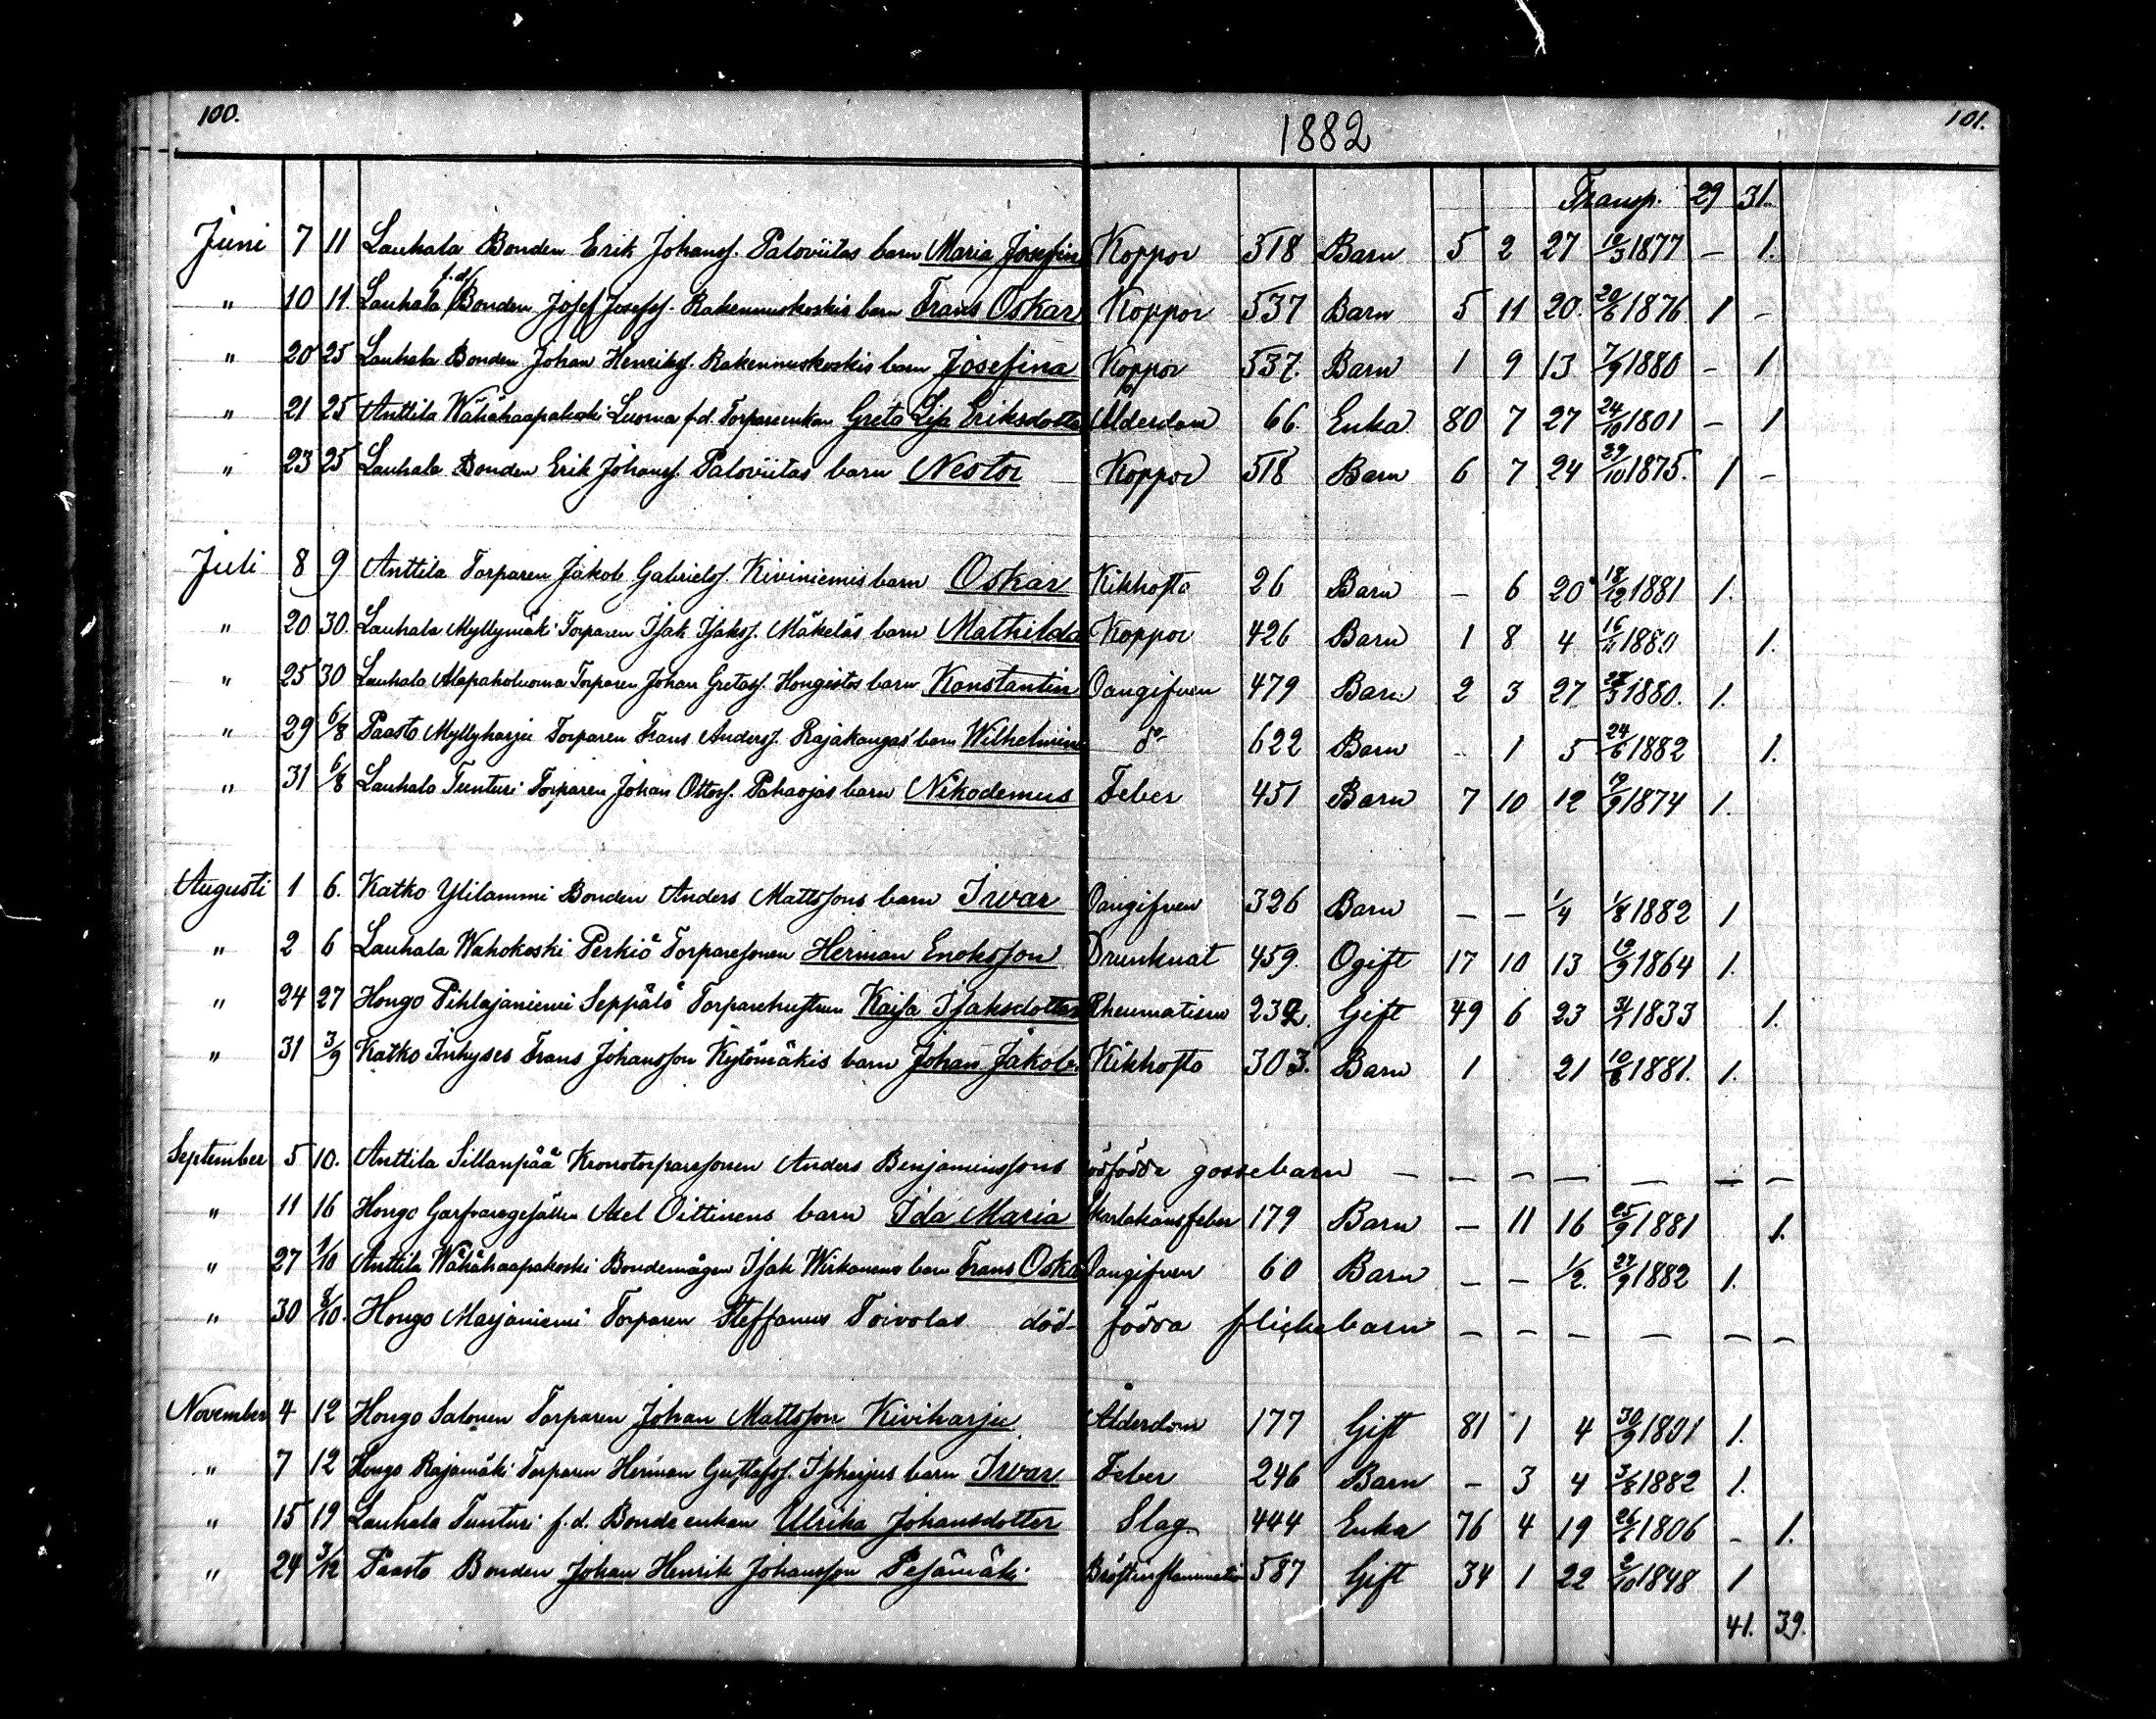 100.
1882
101.
Transp. 29 31.
Juni 7 11 Lauhala Bonden Erik Johansf. Paloviitas barn Maria Josefin Koppor 518 Barn 5 2 27 10/3 1877 — 1.
" 10 11 Lauhala f.d. Bonden Josef Josefsf. Rakennuskoskis barn Frans Oskar Koppor 537 Barn 5 11 20. 20/6 1876 1 -
" 20 25 Lauhala Bonden Johan Henriksf. Rakennuskoskis barn Josefina Koppor 537. Barn 1 9 13 7/9 1880 — 1
" 21 25 Anttila Wähähaapakoski Luoma f.d. Torpareenkan Greta Lisa Eriksdotter Ålderdom 66. Enka 80 7 27 24/10 1801 — 1
" 23 25 Lauhala Bonden Erik Johansf. Paloviitas barn Nestor Koppor 518 Barn 6 7 24 29/10 1875. 1 —
Juli 8 9 Anttila Torparen Jakob Gabrielsf. Kiviniemis barn Oskar Kikhosta 26 Barn — 6 20 18/12 1881 1.
" 20 30. Lauhala Myllymäki Torparen Isak Isaksf. Mäkeläs barn Mathilda Koppor 426 Barn 1 8 4 16/11 1880 1.
" 25 30 Lauhala Alapaholuoma Torparen Johan Gretasf. Hongistos barn Konstantin Oangifven 479 Barn 2 3 27 28/3 1880. 1.
" 29 6/8 Paasto Myllyharju Torparen Frans Andersf. Rajakangas barn Wilhelmina do 622 Barn — 1 5 24/6 1882 1.
" 31 6/8 Lauhala Tunturi Torparen Johan Ottosf. Pahaojas barn Nikodemus Feber 451 Barn 7 10 12 19/9 1874 1.
Augusti 1 6. Katko Ylilammi Bonden Anders Mattssons barn Irvar Oangifven 326 Barn — — 1/4 1/8 1882 1
" 2 6 Lauhala Wahokoski Perkiö Torparesonen Herman Enoksson Drunknat 459. Ogift 17 10 13 19/9 1864 1.
" 24 27 Hongo Pihlajaniemi Seppälä Torparehustrun Kaisa Isaksdotter Rheumatism 232. Gift 49 6 23 31/1 1833 1.
" 31 3/9 Katko Inhyses Frans Johansson Kytömäkis barn Johan Jakob. Kikhosta 303. Barn 1 21 10/8 1881. 1.
September 5 10. Anttila Sillanpää Kronotorparesonen Anders Benjaminssons dödfödda gossebarn — — — — — — —
" 11 16 Hongo Garfvaregesällen Axel Oittinens barn Ida Maria Skarlakansfeber 179 Barn — 11 16 25/9 1881 1.
" 27 1/10 Anttila Wähähaapakoski Bondemågen Isak Wirkanens barn Frans Oska Oangifven 60 Barn — — 1/2. 27/9 1882 1.
" 30 8/10. Hongo Marjaniemi Torparen Steffanus Toivolas död- födda flickebarn — — — — — —
November 4 12 Hongo Salonen Torparen Johan Mattsson Kiviharju Ålderdom 177 Gift 81 1 4 30/9 1801 1.
" 7 12 Hongo Rajamäki Torparen Herman Gustafsf. Isoharjus barn Irvar Feber 246 Barn — 3 4 3/8 1882 1.
" 15 19 Lauhala Tunturi f.d. Bondeenkan Ulrika Johansdotter Slag 444 Enka 76 4 19 26/6 1806 — 1.
" 24 3/12 Paasto Bonden Johan Henrik Johansson Pesämäki Bröstinflammation 587 Gift 34 1 22 2/10 1848 1
41. 39.